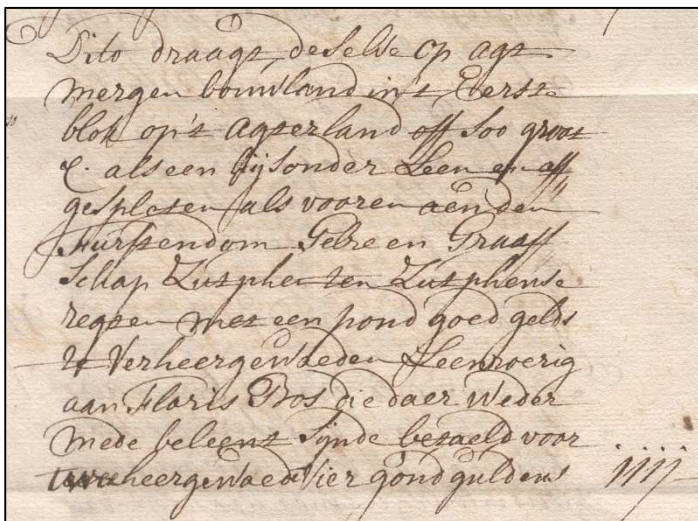 Dito draagt deselve op agt
mergen bouwland in't Eerste
blok op't agterland off soo groot
&. als een bijsonder Leen en aff
gespleten als vooren aen den
Furstendom Gelre en Graaff
Schap Zutphen ten Zutphense
regten met een pond goed gelds
te Verheergewaeden Leenroerig
aan Floris Bos die daer weder
mede beleent Sijnde betaeld voor
heergewaede Vier goud guldens iiij